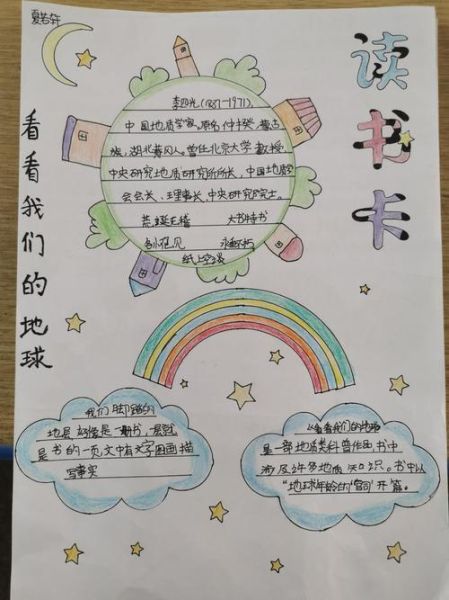 夏若轩
读书卡
看看我们的地球
李四光(1887-1971),
中国地质学家,原名仲揆 蒙古
族,湖北黄冈人。曾任北京大学 教授,
中央研究地质研究所所长,中国地质学
会会长、理事长,中央研究院院士。
荒诞无稽 大书特书
各抒己见 永垂不朽
纸上空谈
我们脚踏的
地层 好像是一册书,一层就
是书的一页文中有文字图画描
写事实
《看看我们的地球》
是一部地质类科普作品,书中
涉及许多地质知识。书中以
"地球年龄的"官司"开篇。